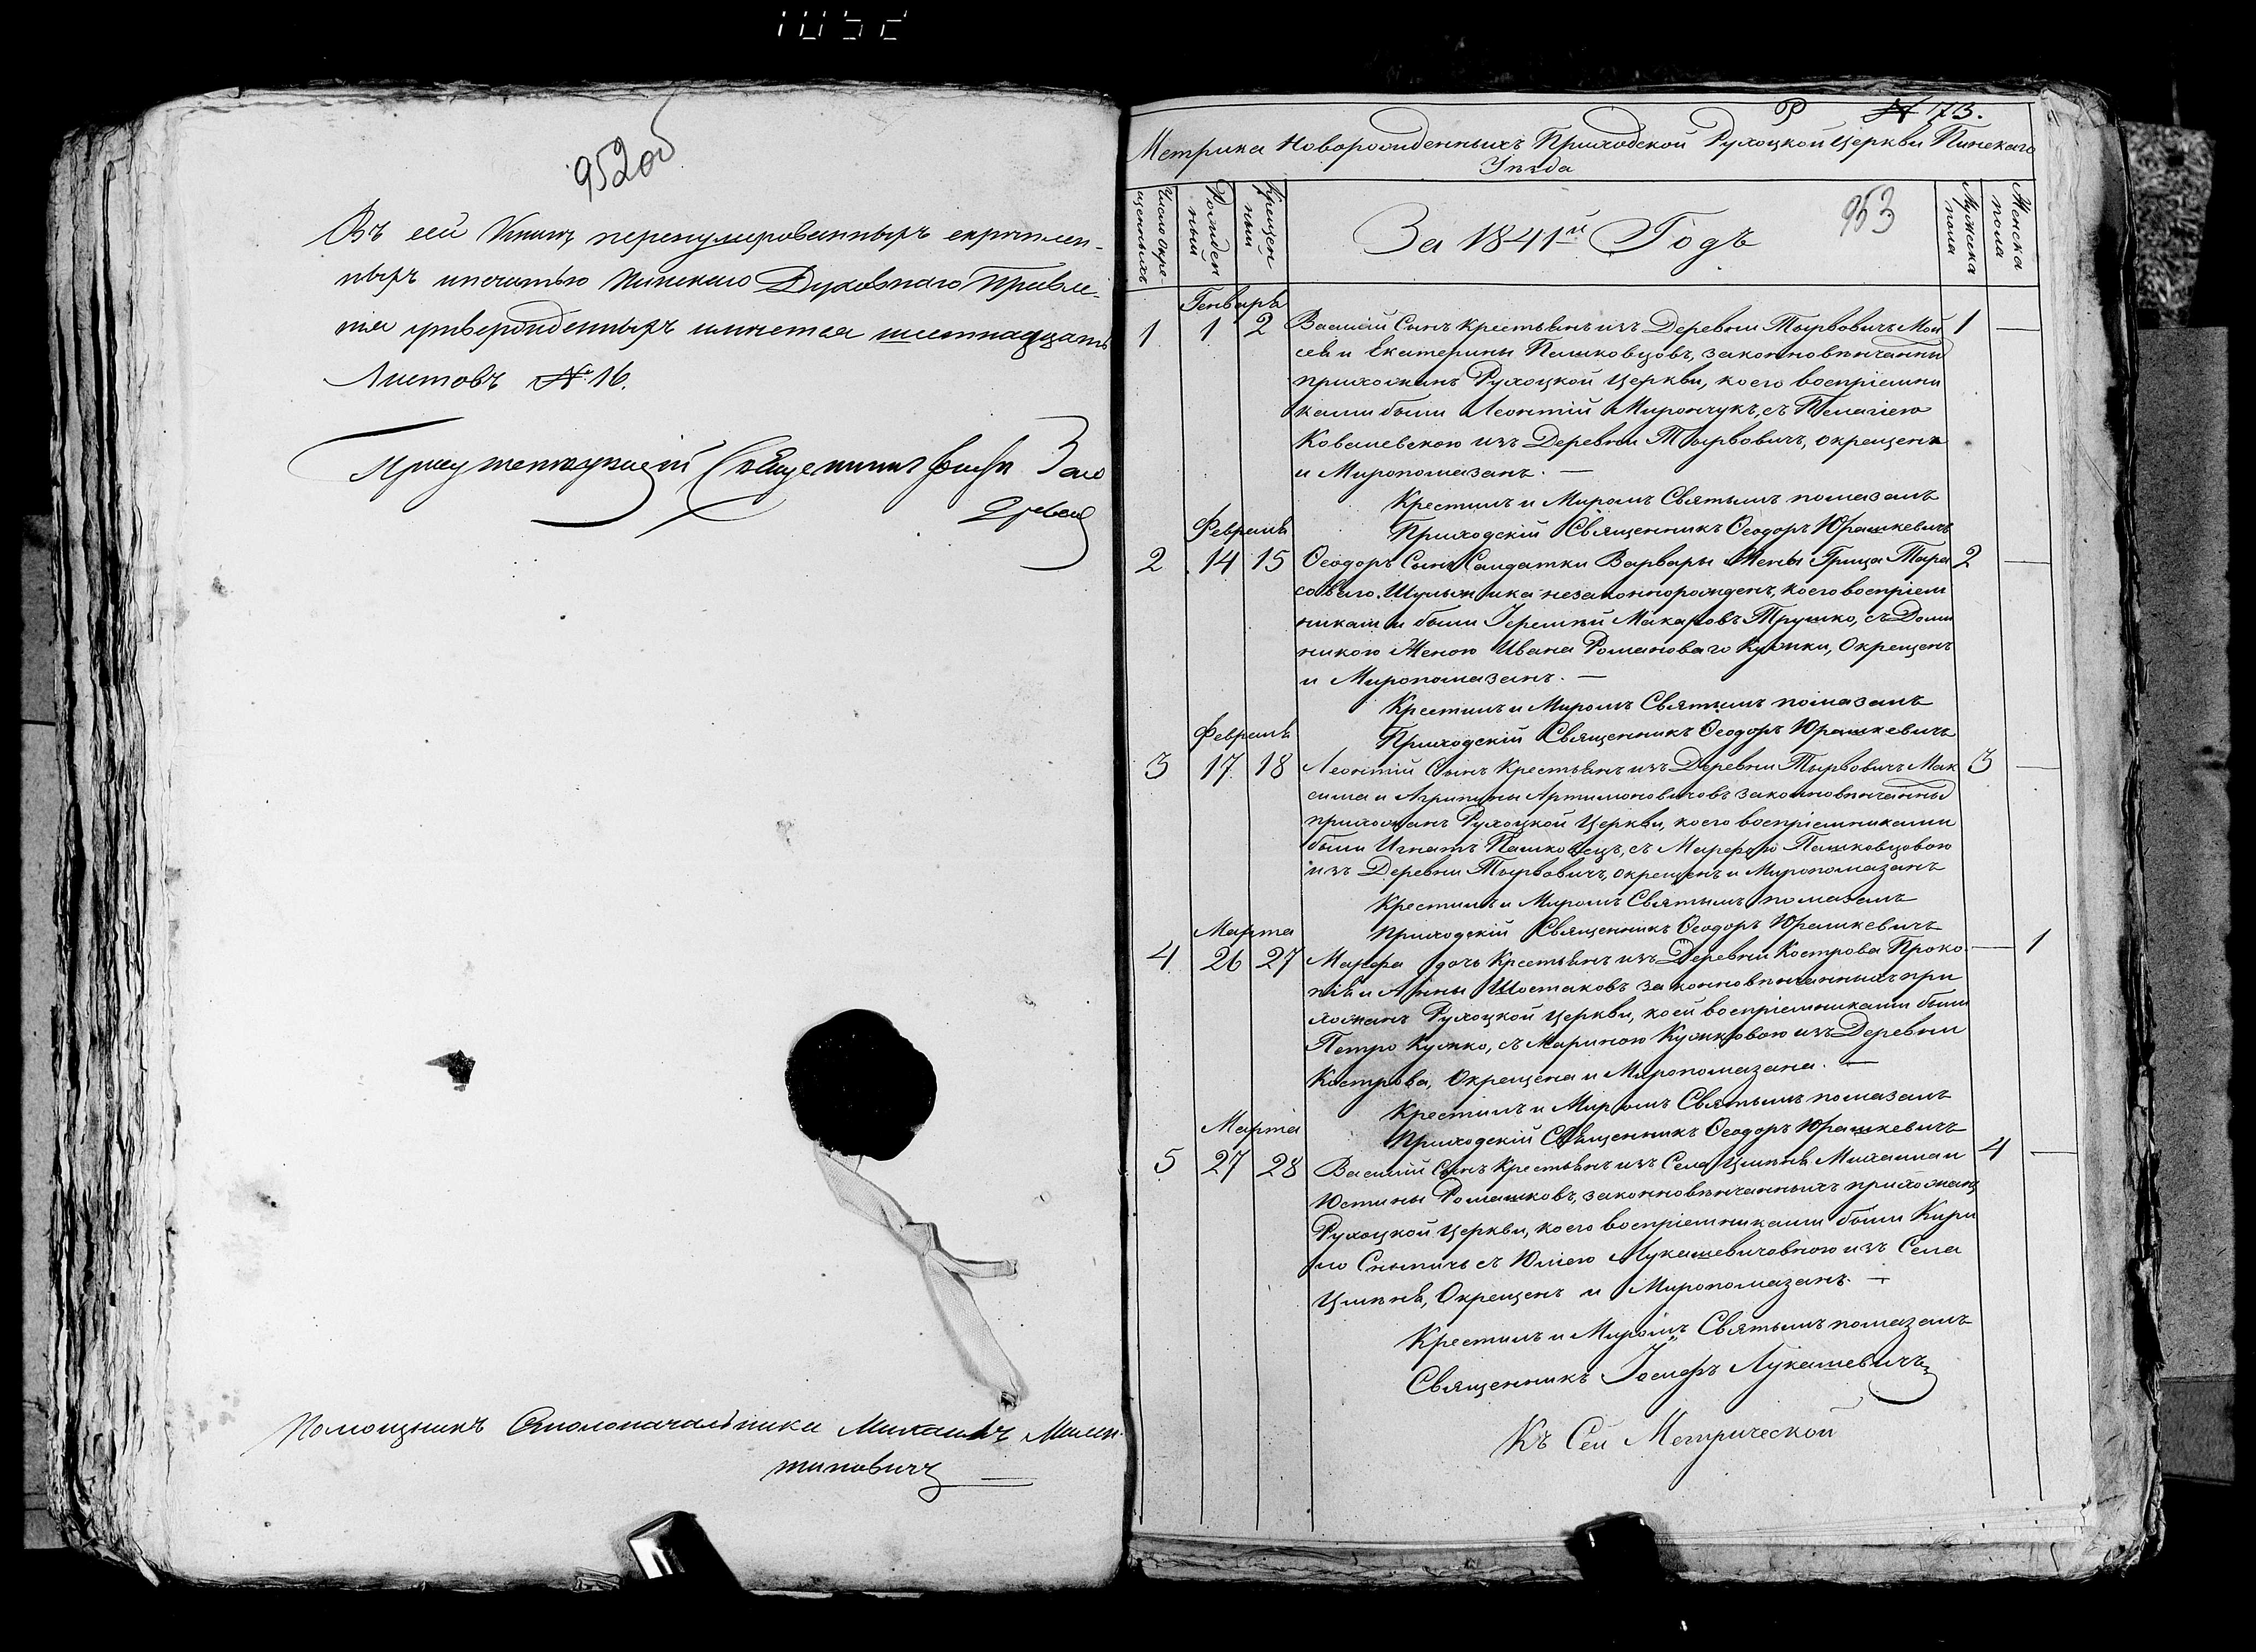 1052
952об
Въ сей Книгѣ перенумерованныхъ скрѣплен-
ныхъ и печатью Пинскаго Духовнаго Правле-
нія утвержденныхъ имѣется шестнадцать
Листовъ № 16.
Присутствующій Священникъ
Помощникъ Столоначальника Михаилъ
Р № 173.
Метрика Новорожденныхъ Приходской Рухоцкой Церкви Пинскаго
Уѣзда
Число окре
щенныхъ
Рожден
ный
Крещен
ный
За 1841й Годъ
953
Мужска
пола
Женска
пола
Генварь
1 1 2 Василій Сынъ Крестьянъ изъ Деревни Тырвовичъ Мои 1 —
сея и Екатерины Пашковцовъ, законновѣнчанны
прихожанъ Рухоцкой Церкви, коего воспріемни
ками были Леонтій Мирончукъ, съ Пелагіею
Ковалевскою изъ Деревни Тырвовичъ, окрещенъ
и Миропомазанъ. —
Крестилъ и Миромъ Святымъ помазалъ
Февраль Приходскій Священникъ Ѳеодоръ Юрашкевичъ
2 14 15 Ѳеодоръ Сынъ Салдатки Варвары Жены Грица Тара 2 —
соваго Шульжика незаконнорожденъ, коего воспріем
никами были Іеремѣй Макаровъ Трушко, съ Доми
никою Женою Ивана Романоваго Кужки, Окрещенъ
и Миропомазанъ. —
Крестилъ и Миромъ Святымъ помазалъ
Февраль Приходскій Священникъ Ѳеодоръ Юрашкевичъ
3 17 18 Леонтій Сынъ Крестьянъ изъ Деревни Тырвовичъ Мак 3 —
сима и Агрипины Артимоновичовъ законновѣнчанны
прихожанъ Рухоцкой Церкви, коего воспріемниками
были Игнатъ Пашковецъ, съ Марфою Пашковцовою
изъ Деревни Тырвовичъ, окрещенъ и Миропомазанъ
Крестилъ и Миромъ Святымъ помазалъ
Марта Приходскій Священникъ Ѳеодоръ Юрашкевичъ
4 26 27 Марфа дочь Крестьянъ изъ Деревни Кострова Проко- — 1
пія и Анны Шостаковъ законновѣнчанныхъ при
хожанъ Рухоцкой Церкви, коей воспріемниками были
Петро Кужко, съ Мариною Кужковою изъ Деревни
Кострова, Окрещена и Миропомазана. —
Крестилъ и Миромъ Святымъ помазалъ
Марта Приходскій Священникъ Ѳеодоръ Юрашкевичъ
5 27 28 Василій Сынъ Крестьянъ изъ Села Цмѣня Михаила и 4 —
Юстины Ромашковъ, законновѣнчанныхъ прихожанъ
Рухоцкой Церкви, коего воспріемниками были Кири
ло Сныпичъ съ Юліею Лукашевичовною изъ Села
Цмѣня, Окрещенъ и Миропомазанъ. —
Крестилъ и Миромъ Святымъ помазалъ
Священникъ Іосифъ Лукашевичъ
Къ Сей Метрической